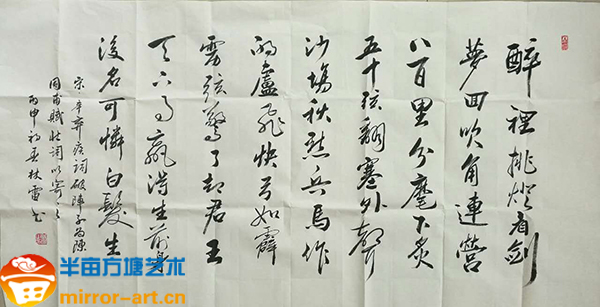 醉裡挑燈看劍
夢回吹角連營
八百里分麾下炙
五十弦翻塞外聲
沙場秋點兵馬作
的盧飛快弓如霹
靂弦驚了却君王
天下事贏得生前身
後名可憐白髮生
宋辛弃疾詞破陣子為陳
同甫賦壯詞以寄之
丙申初春林雷書
半亩方塘艺术
mirror-art.cn